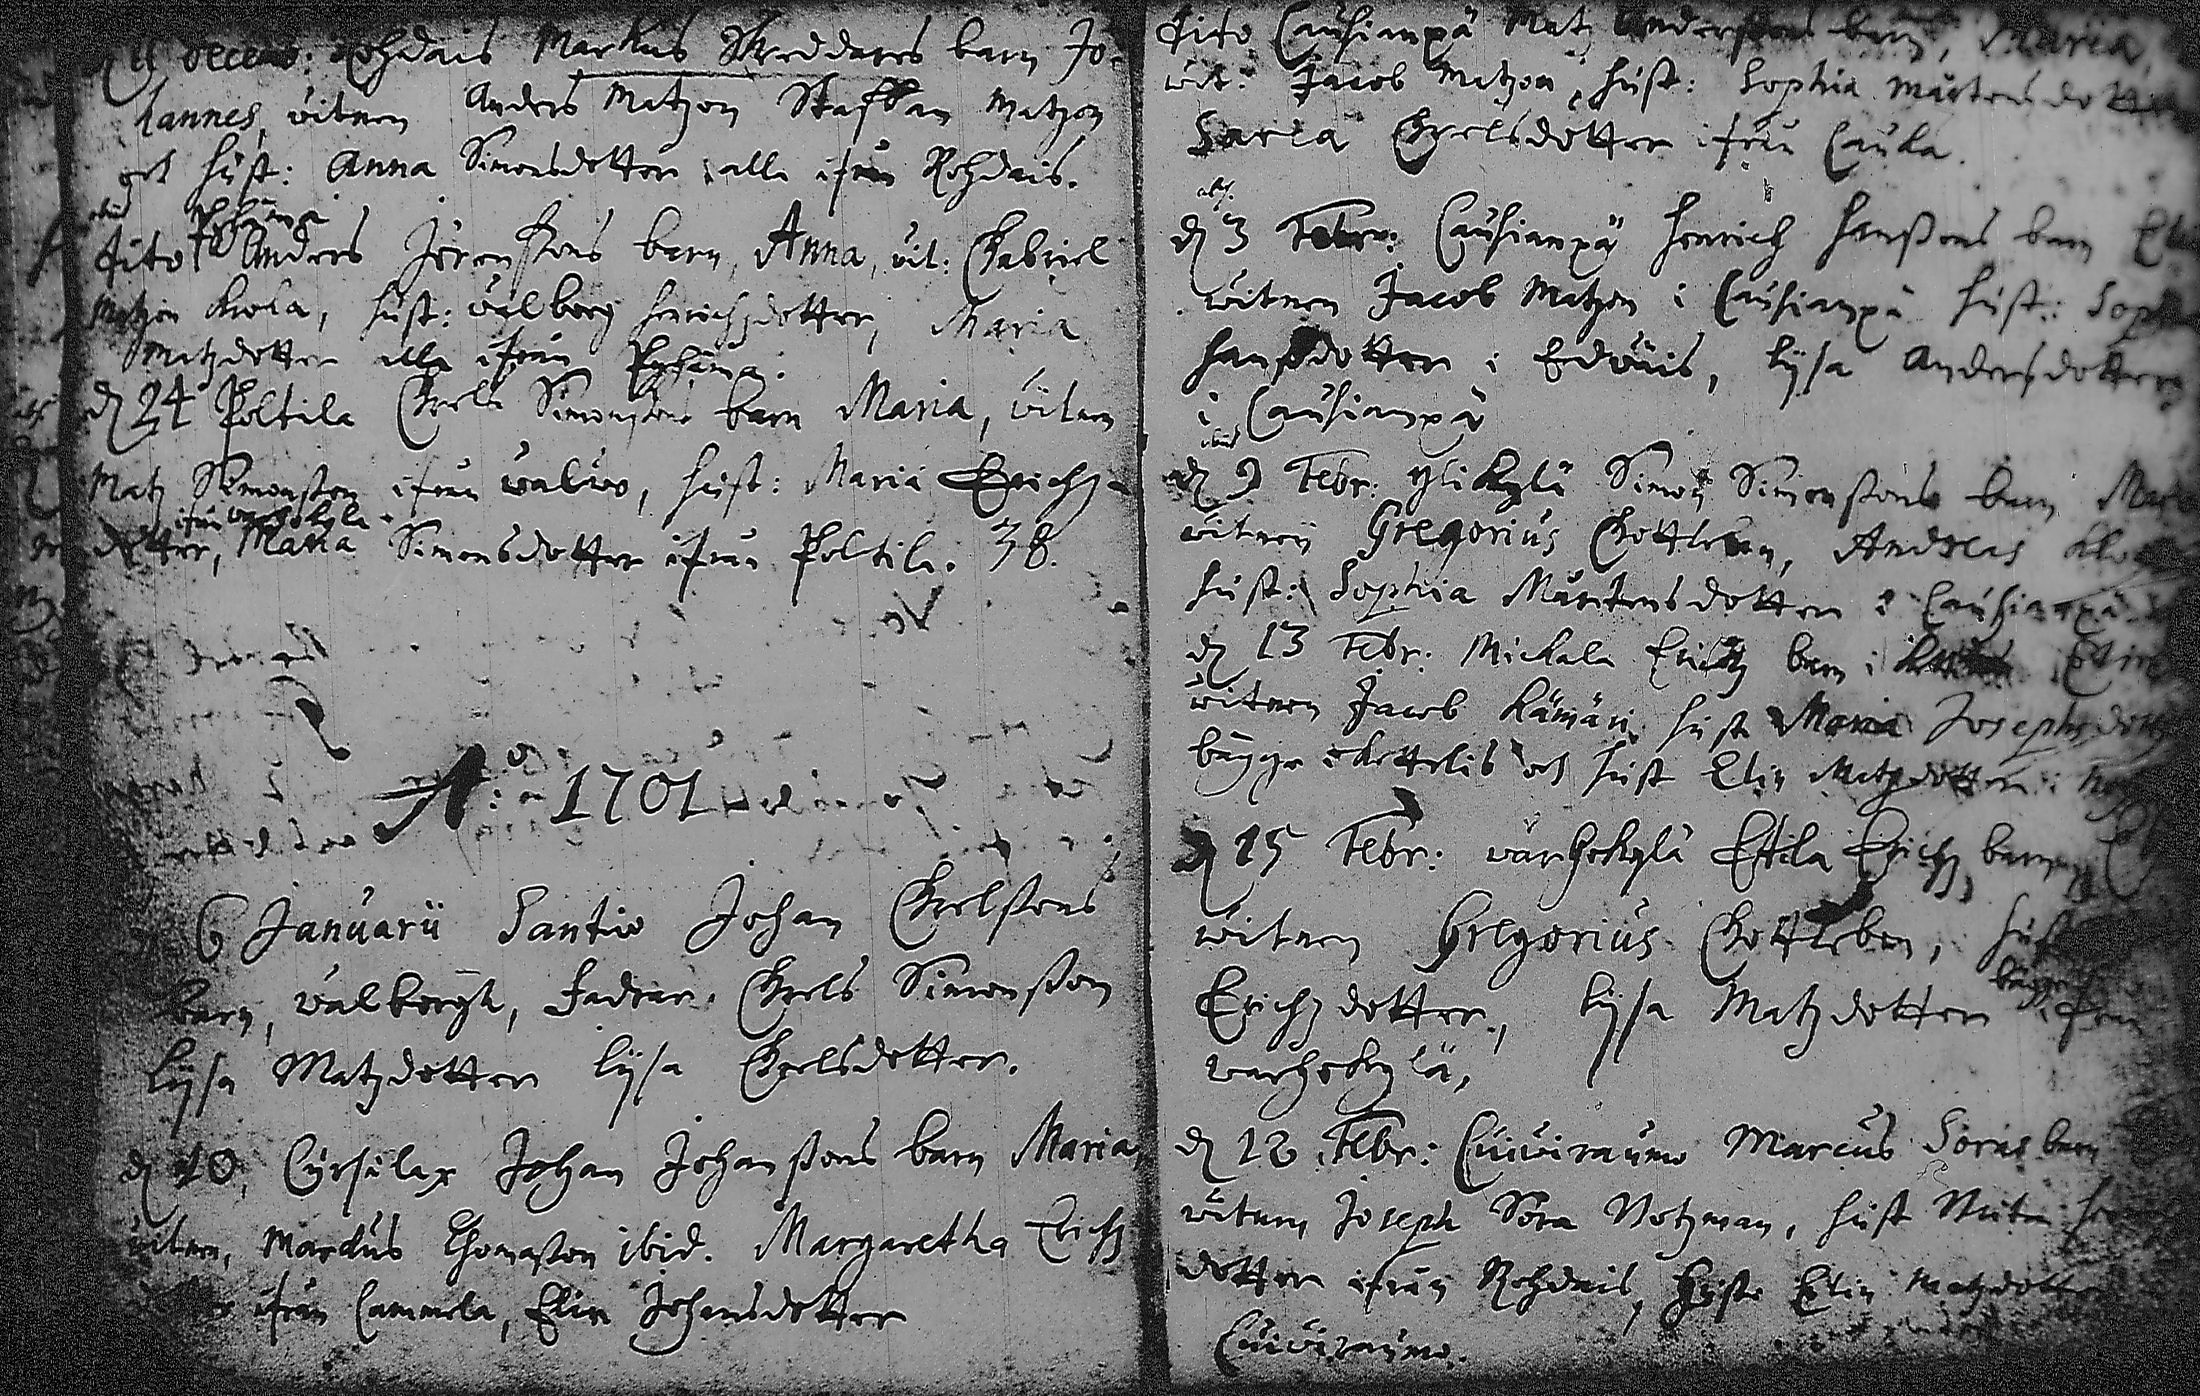 Decemb: Rohdais Markus Skreddares barn Jo-
hannes, witnen Anders Matzon Staffan Matzon
och hust: Anna Simonsdotter, alla ifrån Rohdais.
ibid
Pyhäma
dito Anders Jörenssons barn, Anna, wit: Gabriel
Matzon Kola, hust: walborg henrichzdotter, Maria
Matzdotter alla ifrån Pyhäma.
d 24 Poltila Grels Simonssons barn Maria, witnen
Matz Simonsson ifrån waliro, hust: Maria Erichz-
ifrån
dotter, Maria Simonsdotter ifrån Poltila. 38.
A:o 1701
6 Januarii Santio Johan Grelssons
barn, walborgh, Fadrar. Grels Simonsson
Lijsa Matzdotter Lijsa Grelsdotter.
d 10, Cyrsilax Johan Johanssons barn Maria
witnen, Markus Thomasson ibid. Margaretha Erichz
dotter ifrån Cammela, Elin Johansdotter
dito Causiampä Matz Anderssons barn, Maria,
wit: Jacob Matzon, hust: Sophia Mårtensdotter
Saria Grelsdotter ifrån Cauka.
d 3 Febr: Causiampä Henrich Hanssons barn
witnen Jacob Matzon i Causiampä hust: Soph
hansdotter i Edwäis, Lijsa Andersdotter
i Causiampä
ibid
d 9 Febr: Ylikylä Simon Simonssons barn
witnen Gregorius Gottleben, Andreas
hust: Sophia Mårtensdotter i Causiampä
d 13 Febr: Mickala Erichz barn i
witnen Jacob Kämäri, hust Maria Josephsdotter
bägge i Kettelis och hust Elin Matzdotter i
d 15 Febr: warhokylä Ettila Erichz barn
witnen Gregorius Gottleben, hust
bägge
Erichzdotter, Lijsa Matzdotter ifrån
warhokylä,
d 18 Febr: Cuiwiraumo Marcus Soras barn
witnen Joseph Sora Notzman, hust
dotter ifrån Rohdais, hust Elin Matzdotter
Cuiwiraumo.